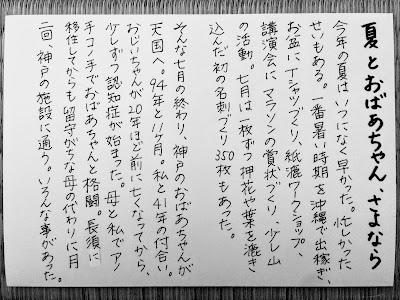 夏とおばあちゃん、さよなら
今年の夏はいつになく早かった。忙しかった
せいもある。一番暑い時期を沖縄で出稼ぎ、
お盆にTシャツづくり、紙漉ワークショップ、
講演会にマラソンの賞状づくり、少し山
の活動。七月は一枚ずつ押花や葉を漉き
込んだ初の名刺づくり350枚もあった。
そんな七月の終わり、神戸のおばあちゃんが
天国へ。94年と11ヶ月。私と41年の付合い。
おじいちゃんが20年ほど前に亡くなってから、
少しずつ認知症が始まった。母と私でアノ
手コノ手でおばあちゃんと格闘。長須に
移住してからも留守がちな母の代わりに月
二回、神戸の施設に通う。いろんな事があった。